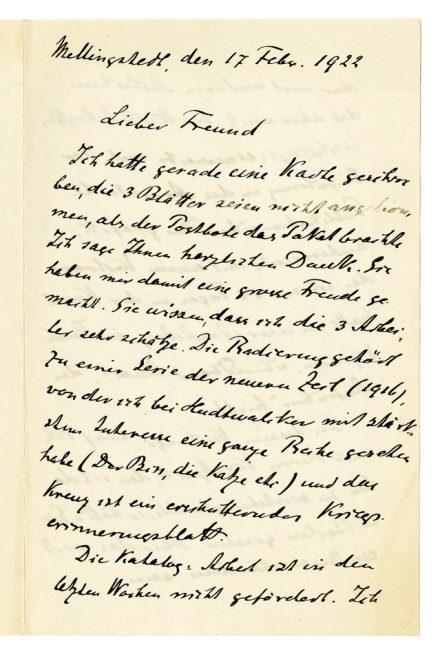 Mellingstedt, den 17 Febr. 1922
Lieber Freund
Ich hatte gerade eine Karte geschrie
ben, die 3 Blätter seien nicht angekom
men, als der Postbote das Paket brachte.
Ich sage Ihnen herzlichen Dank. Sie
haben mir damit eine grosse Freude ge
macht. Sie wissen, dass ich die 3 Arbei,
ter sehr schätze. Die Radierung gehört
zu einer Serie der neueren Zeit (1916),
von der ich bei Hudtwalcker mit stärk„
stem Interesse eine ganze Reihe gesehen
habe (Der Bär, die Katze etc) und das
Kreuz ist ein erschütterndes Kriegs.
erinnerungsblatt.
Die Katalog: Arbeit ist in den
letzten Wochen nicht gefördert. Ich